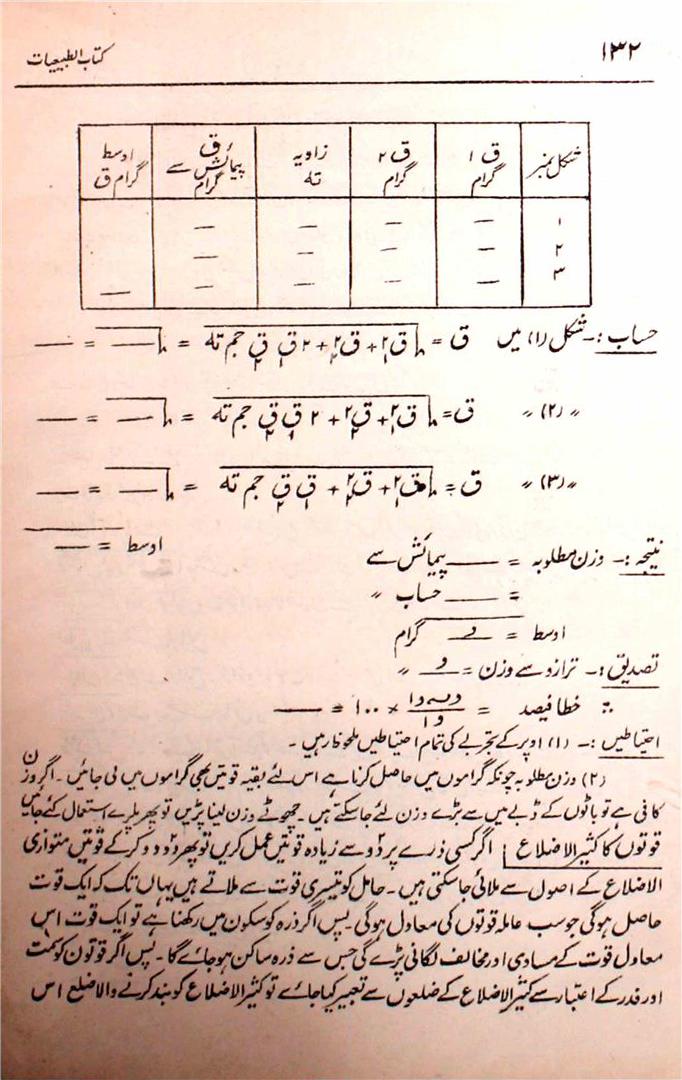 ۱۳۲ کتاب الطبیعیات
شکل نمبر | ق ۱ گرام | ق ۲ گرام | زاویہ تہ | ق پیمائش سے گرام | اوسط گرام ق
۱ — — — —
۲ — — — —
۳ — — — — —
حساب :۔ شکل (۱) میں ق = √ق₁² + ق₂² + ۲ ق₁ ق₂ جم تہ = √— = —
〃 (۲) 〃 ق = √ق₁² + ق₂² + ۲ ق₁ ق₂ جم تہ = √— = —
〃 (۳) 〃 ق = √ق₁² + ق₂² + ق₁ ق₂ جم تہ = √— = —
اوسط = —
نتیجہ :۔ وزن مطلوبہ = — پیمائش سے
= — حساب 〃
اوسط = و گرام
تصدیق :۔ ترازو سے وزن = و 〃
∴ خطا فیصد = × ۱۰۰ = —
احتیاطیں :۔ (۱) اوپر کے تجربے کی تمام احتیاطیں ملحوظ رہیں ۔
(۲) وزن مطلوبہ چونکہ گراموں میں حاصل کرنا ہے اس لئے بقیہ قوتیں بھی گراموں میں لی جائیں ۔ اگر وزن
کافی ہے تو باٹوں کے ڈبے میں سے بڑے وزن لئے جا سکتے ہیں ۔ چھوٹے وزن لینا پڑیں تو پھر پلڑے استعمال کئے جائیں
قوتوں کا کثیر الاضلاع | اگر کسی ذرے پر دو سے زیادہ قوتیں عمل کریں تو پھر دو دو کر کے قوتیں متوازی
الاضلاع کے اصول سے ملائی جا سکتی ہیں ۔ حاصل کو تیسری قوت سے ملاتے ہیں یہاں تک کہ ایک قوت
حاصل ہوگی جو سب عاملہ قوتوں کی معادل ہوگی ۔ پس اگر ذرہ کو سکون میں رکھنا ہے تو ایک قوت اس
معادل قوت کے مساوی اور مخالف لگانی پڑے گی جس سے ذرہ ساکن ہو جائے گا ۔ پس اگر قوتوں کو سمت
اور قدر کے اعتبار سے کثیر الاضلاع کے ضلعوں سے تعبیر کیا جائے تو کثیر الاضلاع کو بند کرنے والا ضلع اس